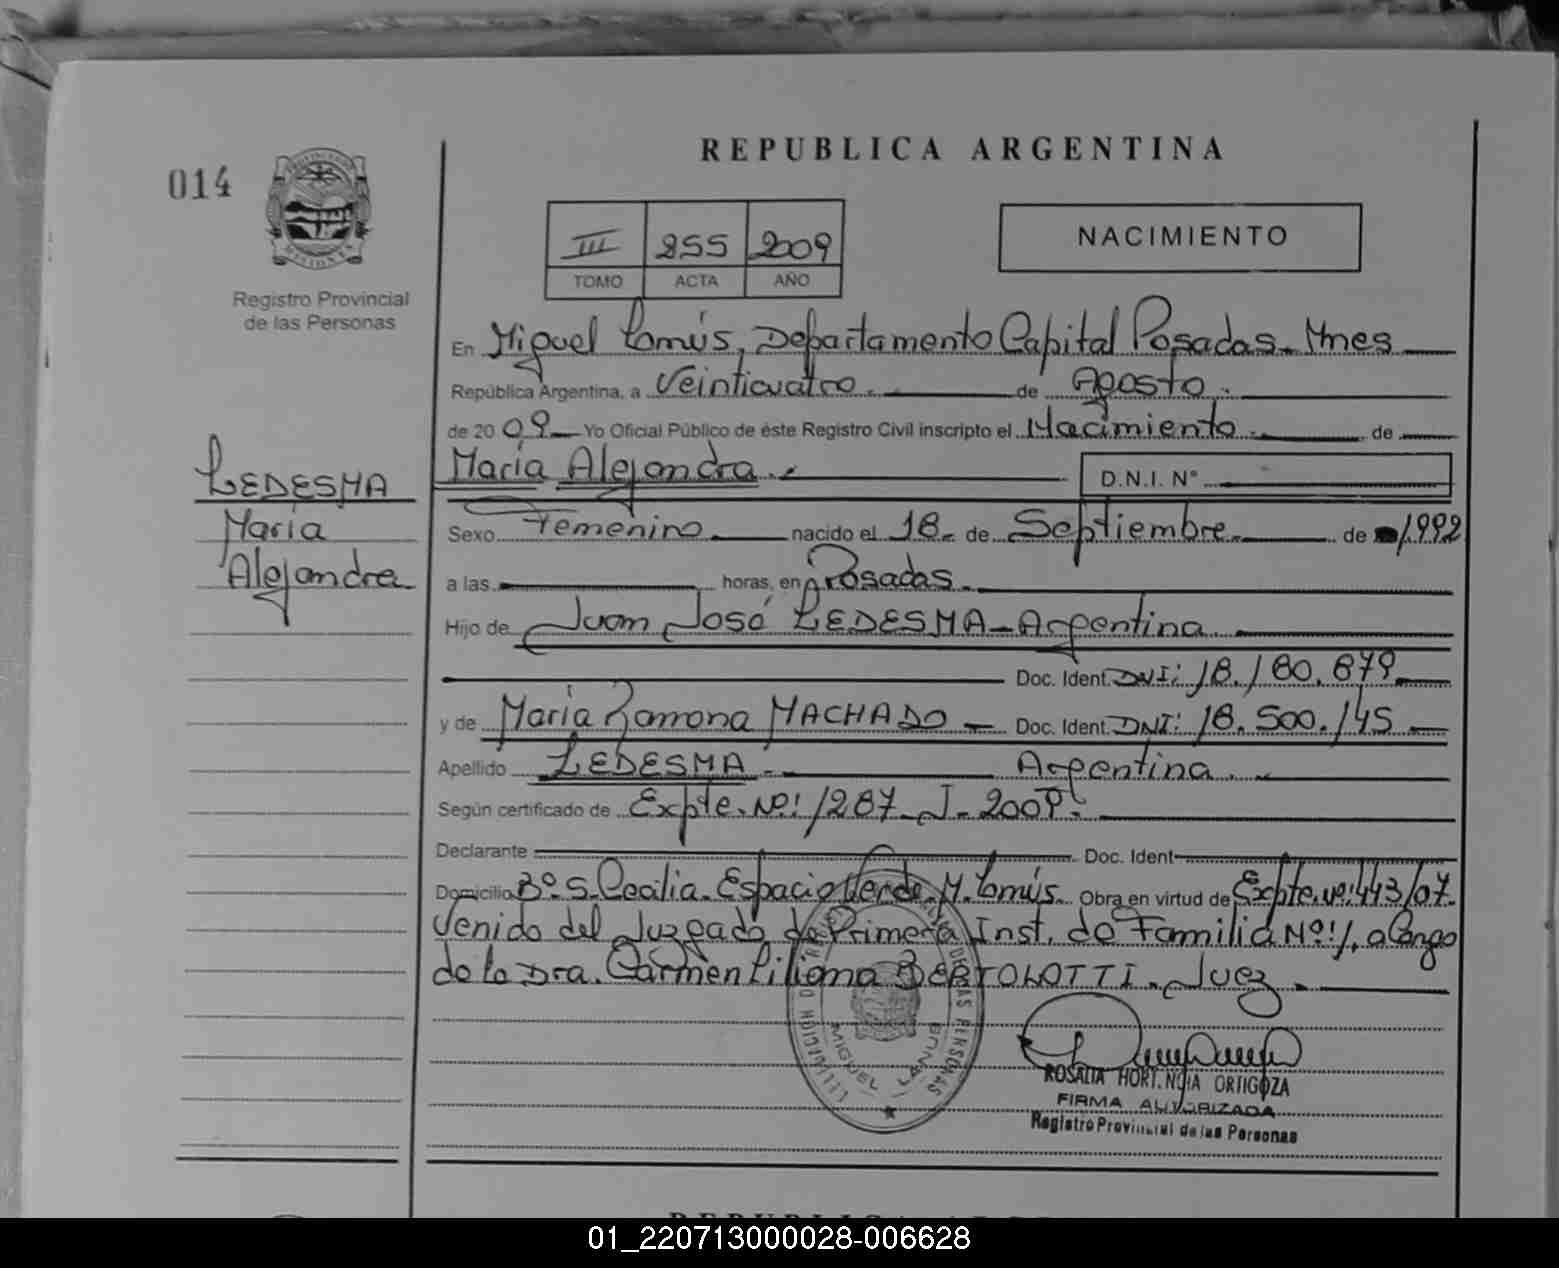 REPUBLICA ARGENTINA
014
NACIMIENTO
III 255 2009
TOMO ACTA AÑO
Registro Provincial
de las Personas
En Miguel Lanús, Departamento Capital Posadas - Mnes
República Argentina, a Veinticuatro. de Agosto.
de 20 09 Yo Oficial Público de éste Registro Civil inscripto el Nacimiento. de
María Alejandra. D.N.I. N°
LEDESMA
María
Alejandra
Sexo Femenino nacido el 18. de Septiembre. de 1992
a las horas, en Posadas.
Hijo de Juan José LEDESMA - Argentina.
Doc. Ident. DNI: 18.180.879
y de María Ramona MACHADO - Doc. Ident. DNI: 18.500.145
Apellido LEDESMA. Argentina.
Según certificado de Expte. Nº: 1287 - J - 2009.
Declarante Doc. Ident
Domicilio Bº. S. Cecilia. Espacio Verde. M. Lanús. Obra en virtud de Expte. Nº: 443/07.
Venido del Juzgado de Primera Inst. de Familia Nº: 1, a Cargo
de la Dra. Carmen Liliana BERTOLOTTI. Juez.
DELEGACION REGISTRO DE LAS PERSONAS
MIGUEL LANUS
ROSALIA HORTENCIA ORTIGOZA
FIRMA AUTORIZADA
Registro Provincial de las Personas
01_220713000028-006628